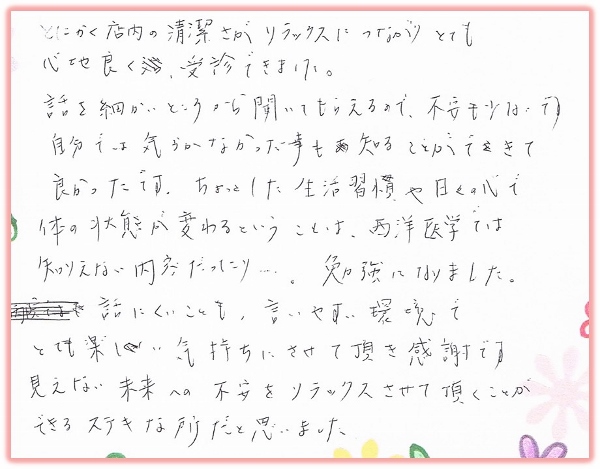 とにかく店内の清潔さがリラックスにつながりとても
心地良く、受診できました。
話を細かいところから聞いてもらえるので、不安も少ないです
自分では気づかなかった事も知ることができて
良かったです。ちょっとした生活習慣や日々の心で
体の状態が変わるということは、西洋医学では
知りえない内容だったり…。勉強になりました。
話にくいことも、言いやすい環境で
とても楽しい気持ちにさせて頂き感謝です
見えない未来への不安をリラックスさせて頂くことが
できるステキな所だと思いました。